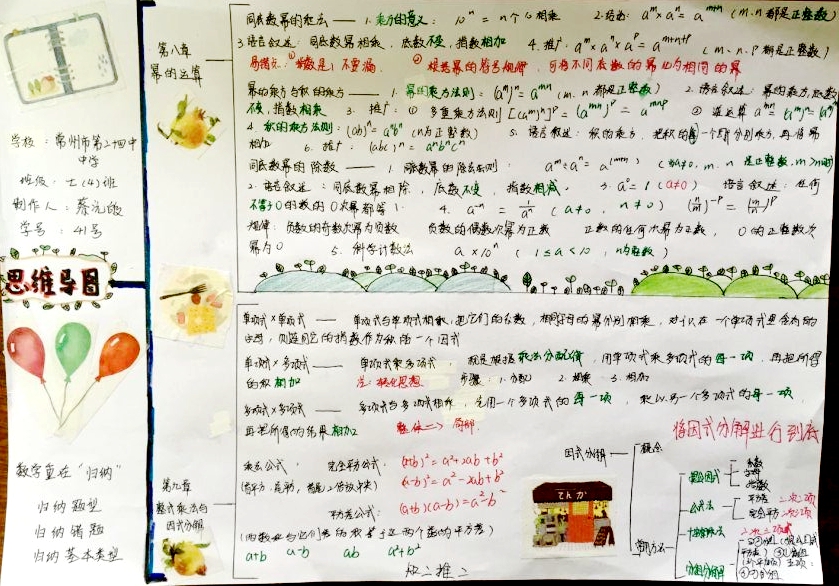 学校：常州市第二十四中
中学
班级：七(4)班
制作人：
学号：41号
思维导图
数学重在"归纳"
归纳题型
归纳错题
归纳基本类型
第八章
幂的运算
同底数幂的乘法 —— 1.乘方的意义：10ⁿ = n个10相乘 2.结论：aᵐ×aⁿ=aᵐ⁺ⁿ (m、n都是正整数)
3.语言叙述：同底数幂相乘，底数不变，指数相加 4.推广：aᵐ×aⁿ×aᵖ=aᵐ⁺ⁿ⁺ᵖ (m、n、p都是正整数)
易错点：①指数是1不要漏 ②根据幂的符号规律，可将不同底数的幂化为相同的幂
幂的乘方与积的乘方 —— 1.幂的乘方法则：(aᵐ)ⁿ=aᵐⁿ (m、n都是正整数) 2.语言叙述：幂的乘方，底数
不变，指数相乘 3.推广：①多重乘方法则[(aᵐ)ⁿ]ᵖ=(aᵐⁿ)ᵖ=aᵐⁿᵖ ②逆运算aᵐⁿ=(aᵐ)ⁿ=(aⁿ)
4.积的乘方法则：(ab)ⁿ=aⁿbⁿ (n为正整数) 5.语言叙述：积的乘方，把积的每一个因式分别乘方，再将幂
相加 6.推广：(abc)ⁿ=aⁿbⁿcⁿ
同底数幂的除数 —— 1.同底数幂的除法法则：aᵐ÷aⁿ=a⁽ᵐ⁻ⁿ⁾ (a≠0，m、n是正整数，m>n时)
2.语言叙述：同底数幂相除，底数不变，指数相减 3.a⁰=1 (a≠0) 语言叙述：任何
不等于0的数的0次幂都等1 4.a⁻ⁿ=1/aⁿ (a≠0, n≠0)
规律：负数的奇数次幂为负数 负数的偶数次幂为正数 正数的任何次幂为正数，0的正整数次
幂为0 5.科学计数法 a×10ⁿ (1≤a<10，n为整数)
第九章
整式乘法与
因式分解
单项式×单项式 —— 单项式与单项式相乘，把它们的系数，相同字母的幂分别相乘，对于只在一个单项式里含有的
字母，则连同它的指数作为积的一个因式
单项式×多项式 —— 单项式乘多项式，就是根据乘法分配律，用单项式乘多项式的每一项，再把所得
的积相加 注：转化思想 步骤：1.分配 2.相乘 3.相加
多项式×多项式 —— 多项式与多项式相乘，先用一个多项式的每一项，乘以另一个多项式的每一项，
再把所得的结果相加
将因式分解进行到底
乘法公式： 完全平方公式：(a+b)²=a²+2ab+b²
(a-b)²=a²-2ab+b²
平方差公式：(a+b)(a-b)=a²-b²
(两数和与它们差的积等于这两个数的平方差)
a+b a-b ab a²+b²
知二推二
因式分解
概念
常用方法
提公因式
系数
字母
指数
公式法
平方差 二次二项
完全平方 二次三项
十字相乘法
二次三项式
分组分解法
てんか